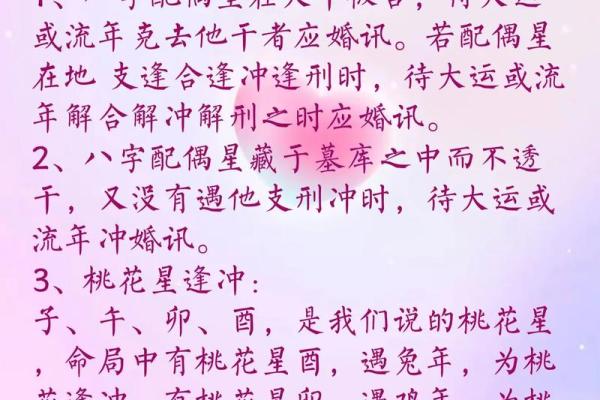 1、八字配偶星在天干被合，待大运
或流年克去他干者应婚讯。若配偶星
在地 支逢合逢冲逢刑时，待大运或流
年解合解冲解刑之时应婚讯。
2、八字配偶星藏于墓库之中而不透
干，又没有遇他支刑冲时，待大运或
流年冲婚讯。
3、桃花星逢冲：
子、午、卯、酉，是我们说的桃花星
，命局中有桃花星酉，遇兔年，为桃
花逢冲，有桃花星卯，遇鸡年，为桃